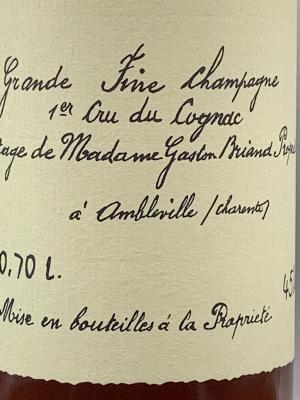 Grande Fine Champagne
1er Cru du Cognac
tage de Madame Gaston Briand Prop
à Ambleville (Charente)
0,70 L. 45
Mise en bouteilles à la Propriété